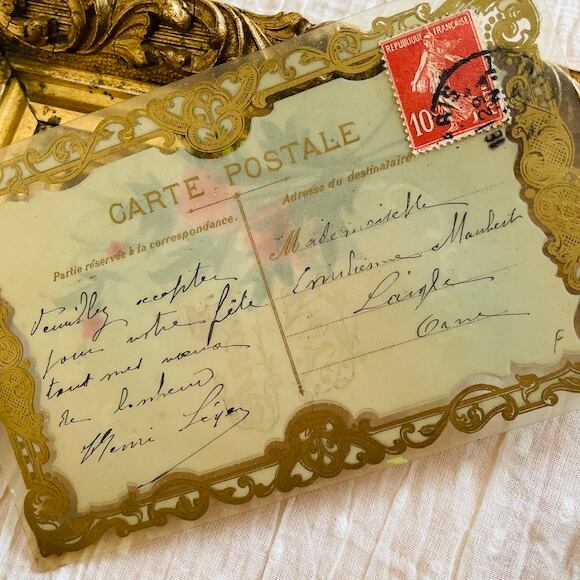 REPUBLIQUE FRANÇAISE
10
CARTE POSTALE
Partie réservée à la correspondance.
Adresse du destinataire
Veuillez accepter
pour votre fête
tout mes vœux
de bonheur
Henri
Mademoiselle
Maubert
Laigle
Orne
F